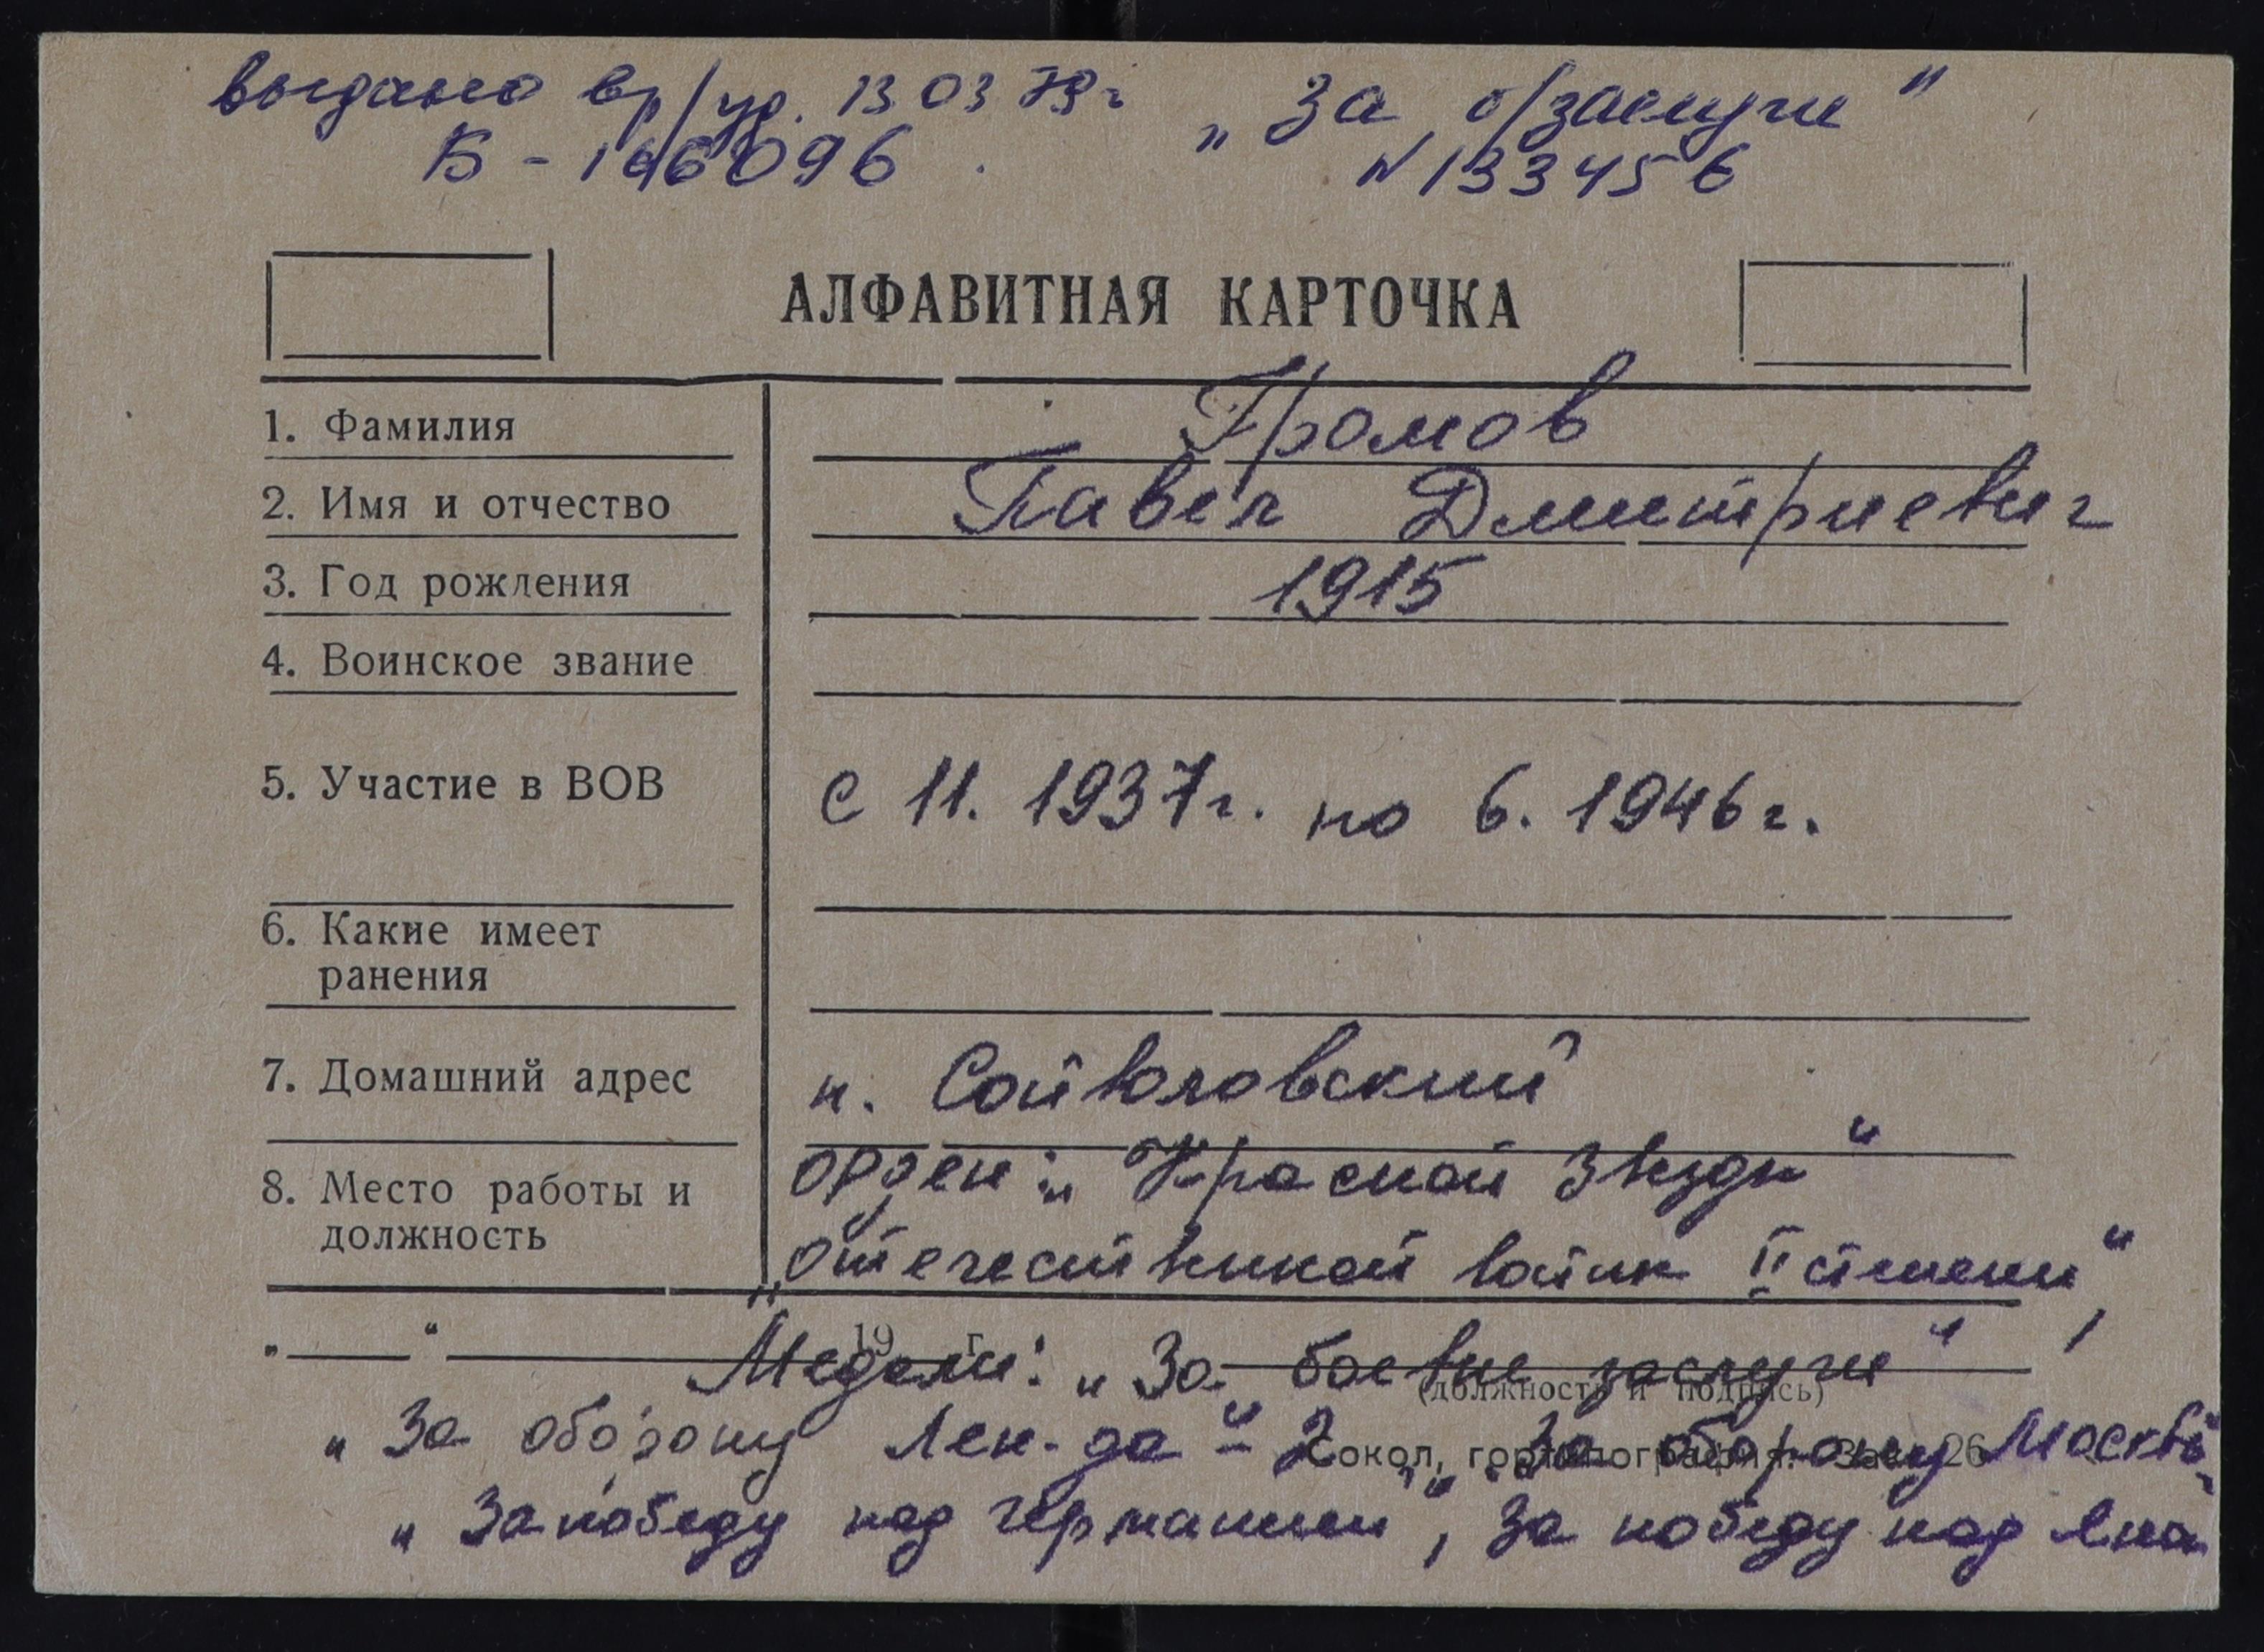 выдано вр/уд. 13 03 79 г „За б/заслуги“
Б - 166096. N 133456
АЛФАВИТНАЯ КАРТОЧКА
1. Фамилия Громов
2. Имя и отчество Павел Дмитриевич
3. Год рождения 1915
4. Воинское звание
5. Участие в ВОВ с 11. 1937 г. по 6. 1946 г.
6. Какие имеет
ранения
7. Домашний адрес п.
8. Место работы и орден: „Красной Звезды“
должность „Отечественной войны II степени“,
„ “ 19 г.
Медали: „За боевые заслуги“
(должность и подпись)
„За оборону Лен-да“ - 2, „За оборону Москвы“
Сокол, гортипография. Зак. 26
„За победу над Германией“, За победу над Япо